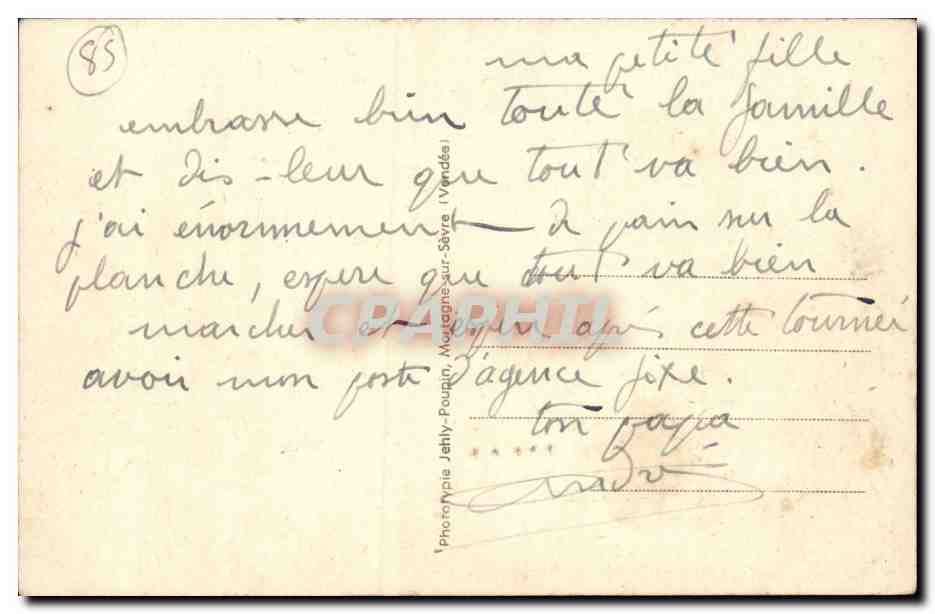 85
ma petite fille
embrasse bien toute la famille
et dis-leur que tout va bien.
j'ai énormément de pain sur la
planche, espère que tout va bien
marcher et espère après cette tournée
avoir mon poste d'agence fixe.
ton papa
André
Phototypie Jehly-Poupin, Mortagne-sur-Sèvre (Vendée)
CPAPHIL